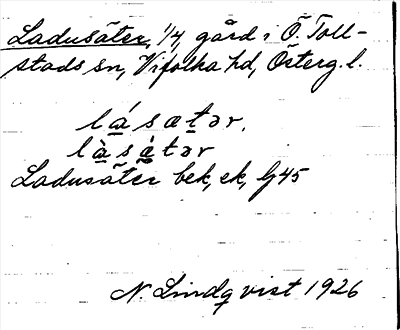 Ladusäter, 1/4, gård i Ö. Toll-
stads sn, Vifolka hd, Österg. l.
lásætər,
làsàtər
Ladusäter bek, ek, Gj 45
N. Lindqvist 1926